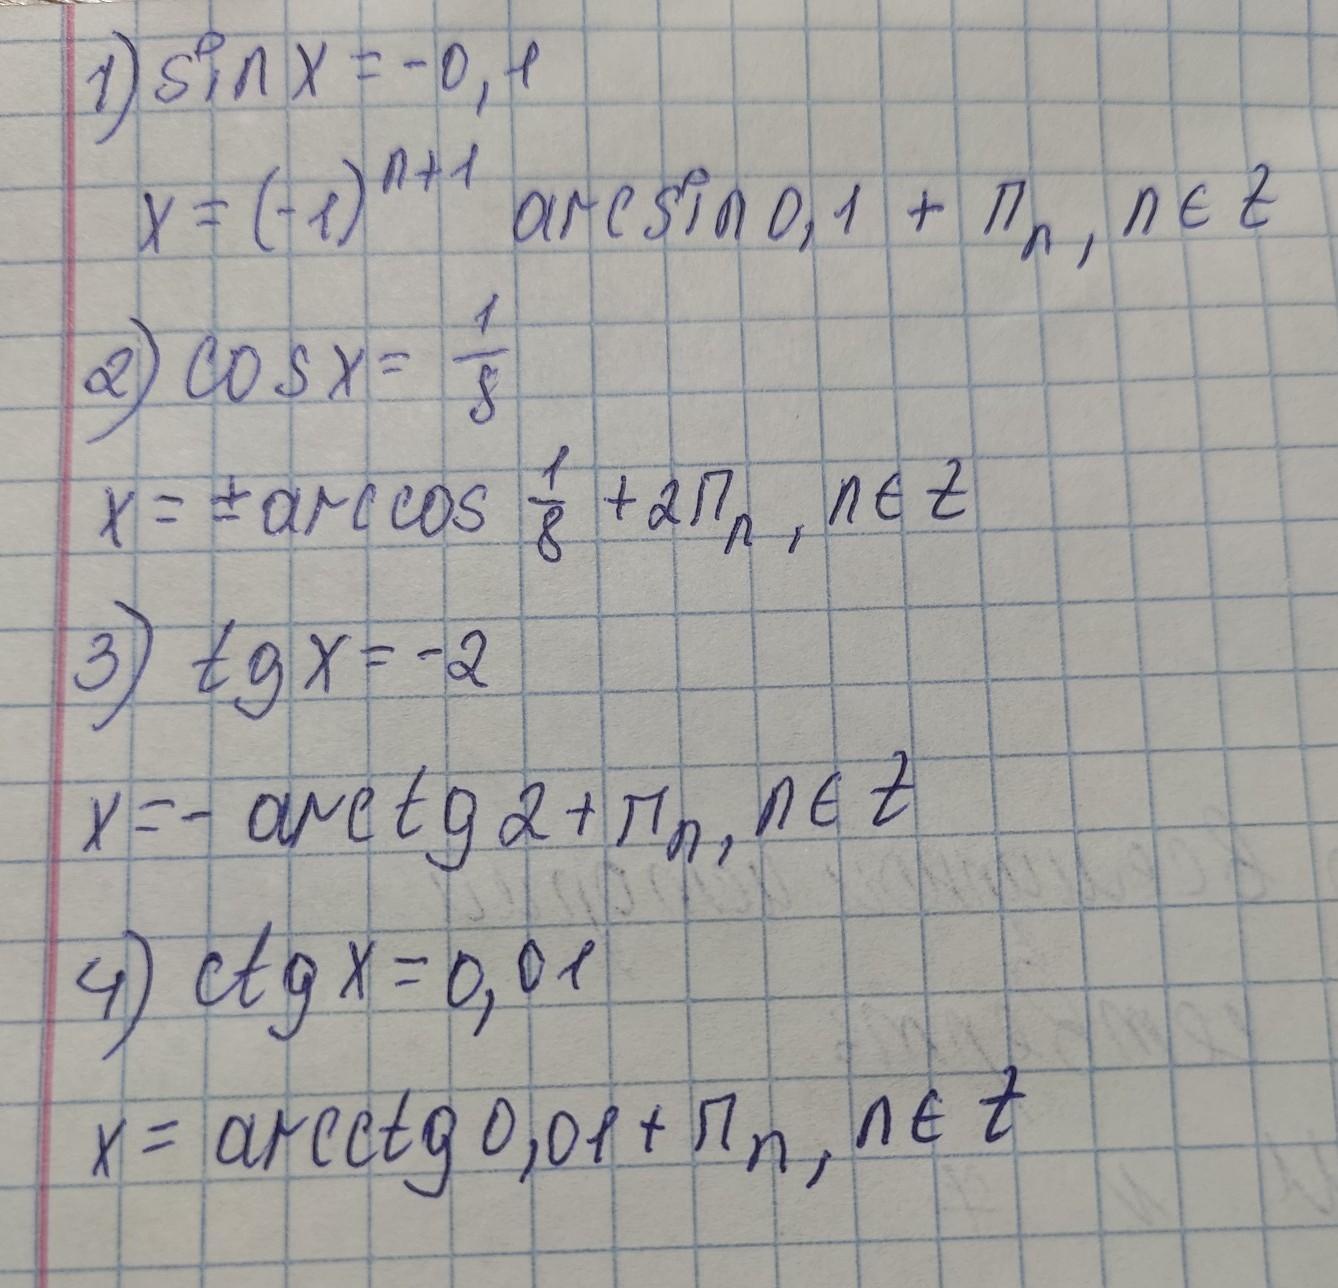 1) sin x = -0,1
x = (-1)^{n+1} arcsin 0,1 + πn, n ∈ Z
2) cos x = 1/8
x = ± arccos 1/8 + 2πn, n ∈ Z
3) tg x = -2
x = - arctg 2 + πn, n ∈ Z
4) ctg x = 0,01
x = arcctg 0,01 + πn, n ∈ Z